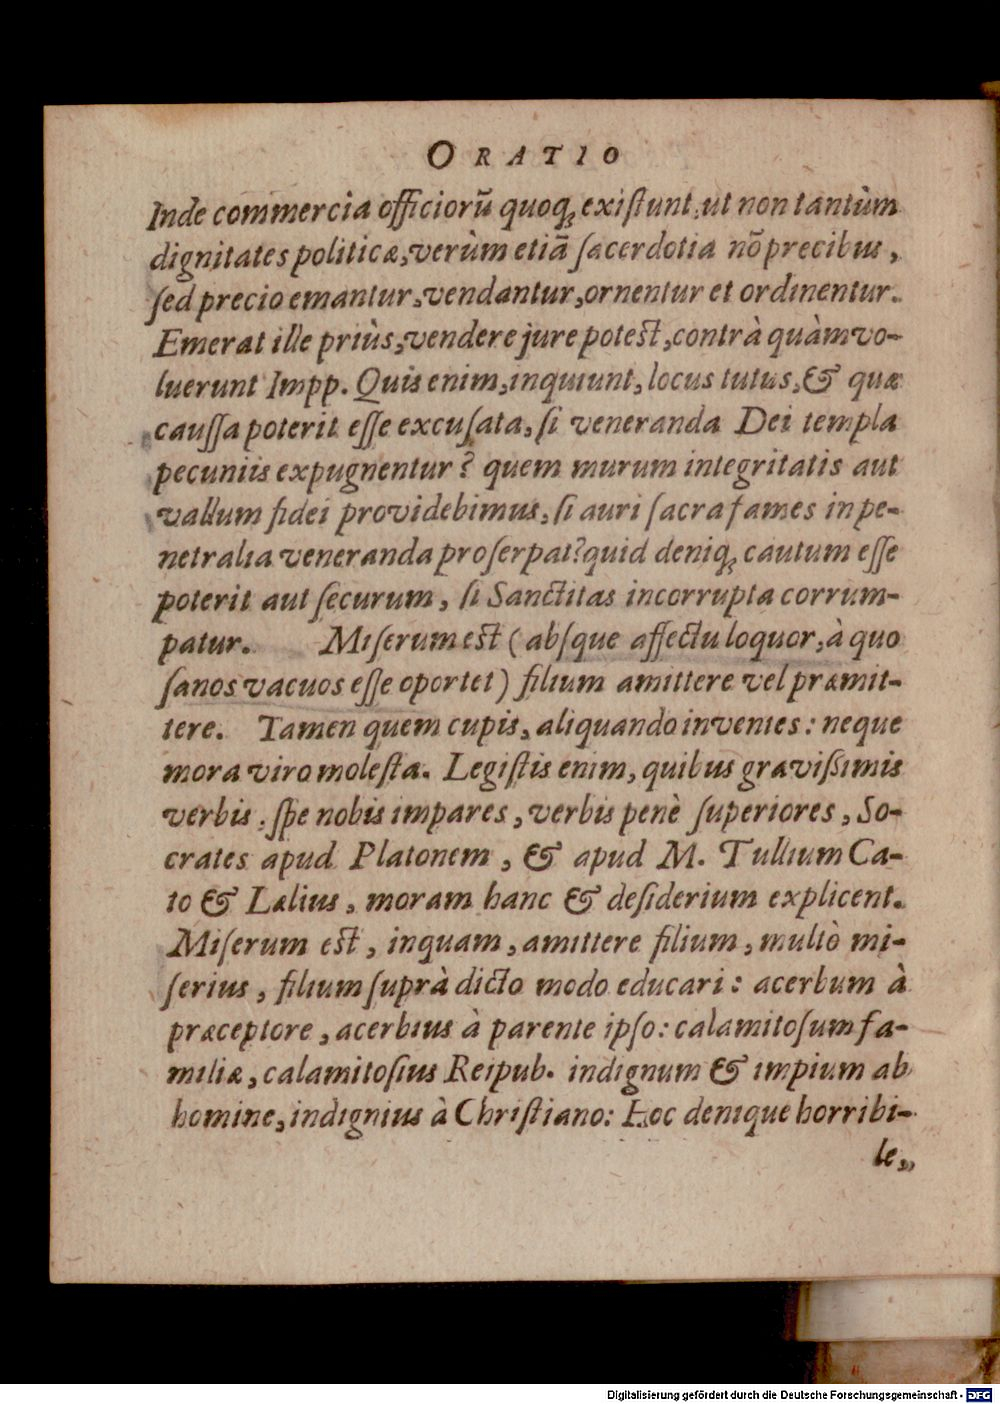 ORATIO
Inde commercia officiorũ quoq; exiſtunt, ut non tantùm
dignitates politicæ, verùm etiã ſacerdotia nõ precibus,
ſed precio emantur, vendantur, ornentur et ordinentur.
Emerat ille priùs, vendere jure poteſt, contrà quàm vo-
luerunt Impp. Quis enim, inquiunt, locus tutus, & quæ
cauſſa poterit eſſe excuſata, ſi veneranda Dei templa
pecuniis expugnentur? quem murum integritatis aut
vallum fidei providebimus, ſi auri ſacra fames in pe-
netralia veneranda proſerpat? quid deniq; cautum eſſe
poterit aut ſecurum, ſi Sanctitas incorrupta corrum-
patur. Miſerum eſt (abſque affectu loquor, à quo
ſanos vacuos eſſe oportet) filium amittere vel præmit-
tere. Tamen quem cupis, aliquando invenies: neque
mora viro moleſta. Legiſtis enim, quibus graviſſimis
verbis, ſpe nobis impares, verbis penè ſuperiores, So-
crates apud Platonem, & apud M. Tullium Ca-
to & Lælius, moram hanc & deſiderium explicent.
Miſerum eſt, inquam, amittere filium, multò mi-
ſerius, filium ſuprà dicto modo educari: acerbum à
præceptore, acerbius à parente ipſo: calamitoſum fa-
miliæ, calamitoſius Reipub. indignum & impium ab
homine, indignius à Chriſtiano: Hoc denique horribi-
le,
Digitalisierung gefördert durch die Deutsche Forschungsgemeinschaft - DFG